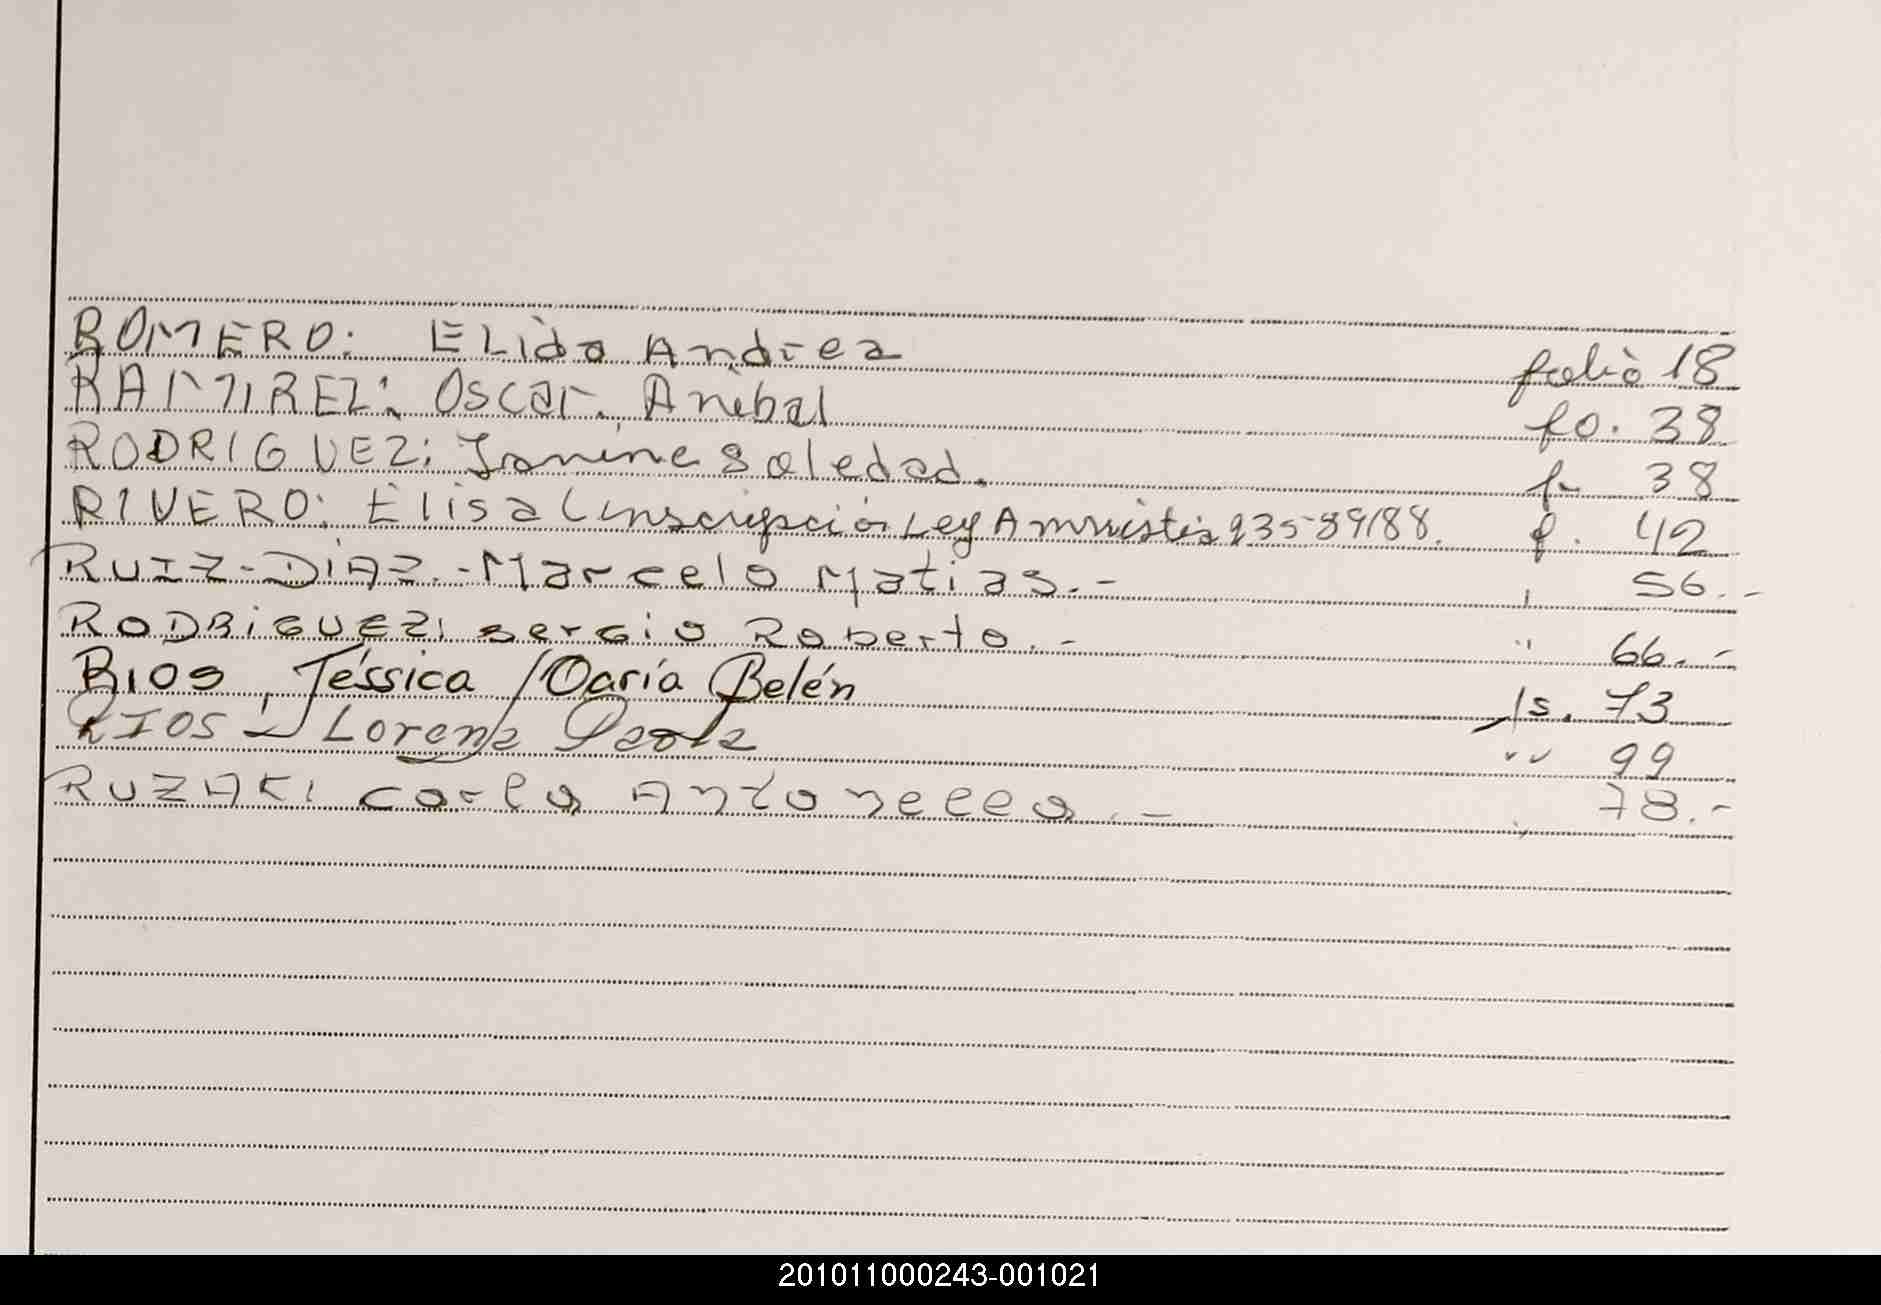 ROMERO: ELida Andrea folio 18
RAMIREZ: Oscar Anibal fo. 38
RODRIGUEZ: Janine Soledad. f. 38
RIVERO: Elisa (inscripción Ley Amnistia 235-89/88. f. 42
RUIZ-DiAZ.-Marcelo Matias.- " 56.-
RODRiGUEZ, sergio Roberto.- " 66.-
RIOS, Jéssica María Belén fs. 73
RIOS - Lorena Paola " 99
RUZAK, Carla Antonella.- " 78.-
201011000243-001021